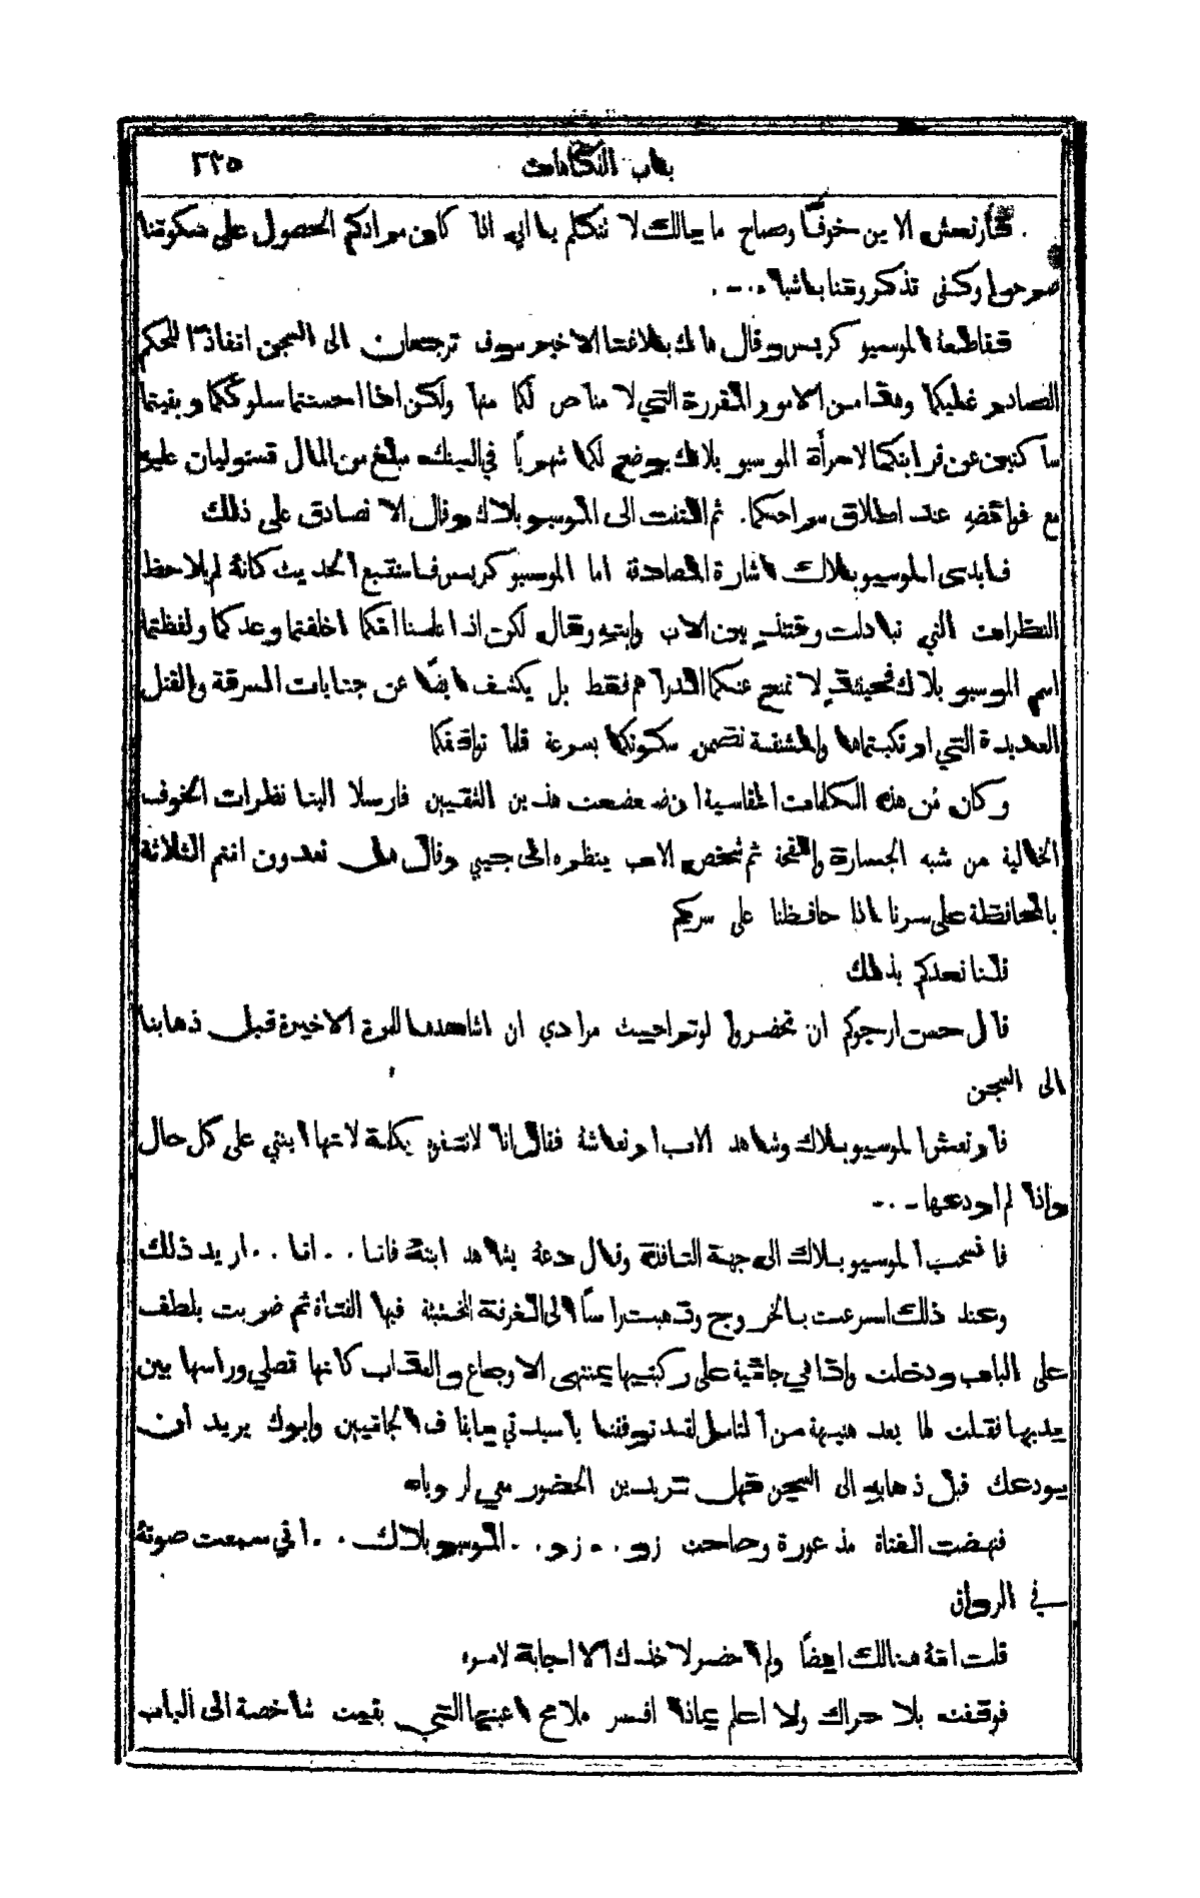 باب الفكاهات ٣٢٥
فارتعش الابن خوفًا وصاح ما بالك لا تتكلم يا ابي اذا كان مرادكم الحصول على سكوتنا
صرحوا وكفى تذكروننا باشياء...
فقاطعهُ الموسيو كريس وقال هاك بلاغنا الاخير سوف ترجعان الى السجن انفاذًا للحكم
الصادر عليكما وهذا من الامور المقررة التي لا مناص لكما منها ولكن اذا احسنتما سلوككما وبقيتما
ساكتين عن قرابتكما لامرأة الموسيو بلاك يوضع لكما شهريًا في البنك مبلغ من المال تستوليان عليهِ
مع فوائضهِ عند اطلاق سراحكما. ثم التفت الى الموسيو بلاك وقال الا تصادق على ذلك
فابدى الموسيو بلاك اشارة المصادقة اما الموسيو كريس فاستتبع الحديث كانهُ لم يلاحظ
النظرات التي تبادلت وقتئذٍ بين الاب وابنهِ وقال لكن اذا علمنا انكما اخلفتما وعدكما ولفظتما
اسم الموسيو بلاك فحينئذٍ لا نمنع عنكما الدراهم فقط بل يكشف ايضًا عن جنايات السرقة والقتل
العديدة التي ارتكبتماها والمشنقة تضمن سكوتكما بسرعة فلما نوافقكما
وكان من هذه الكلمات القاسية ان ضعضعت هذين الشقيين فارسلا الينا نظرات الخوف
الخالية من شبه الجسارة والقحة ثم شخص الاب ينظر الى جيبي وقال هل تعدون انتم الثلاثة
بالمحافظة على سرنا اذا حافظنا على سركم
قلنا نعدكم بذلك
قال حسن ارجوكم ان تحضروا لوترا حيث مرادي ان اشاهدها للمرة الاخيرة قبل ذهابنا
الى السجن
فارتعش الموسيو بلاك وشاهد الاب ارتعاشهُ فقال انا لا اتفوه بكلمة لانها ابنتي على كل حال
واذا لم اودعها...
فانسحب الموسيو بلاك الى جهة النافذة وقال دعهُ يشاهد ابنتهُ فانا... انا... اريد ذلك
وعند ذلك اسرعت بالخروج وذهبت راسًا الى الغرفة المختبئة فيها الفتاة ثم ضربت بلطف
على الباب ودخلت واذا هي جاثية على ركبتيها بمنتهى الاوجاع والعذاب كانها تصلي وراسها بين
يديها فقلت لها بعد هنيهة من التامل لقد توفقنا يا سيدتي بايقاف الجانيين وابوك يريد ان
يودعك قبل ذهابهِ الى السجن فهل تريدين الحضور معي لرؤياه
فنهضت الفتاة مذعورة وصاحت زو... زو... الموسيو بلاك... اني سمعت صوتهُ
في الرواق
قلت انهُ هنالك ايضًا ولم احضر لاخذك الا اجابة لامره
فوقفت بلا حراك ولا اعلم بماذا افسر ملامح اعينها التي بقيت شاخصة الى الباب